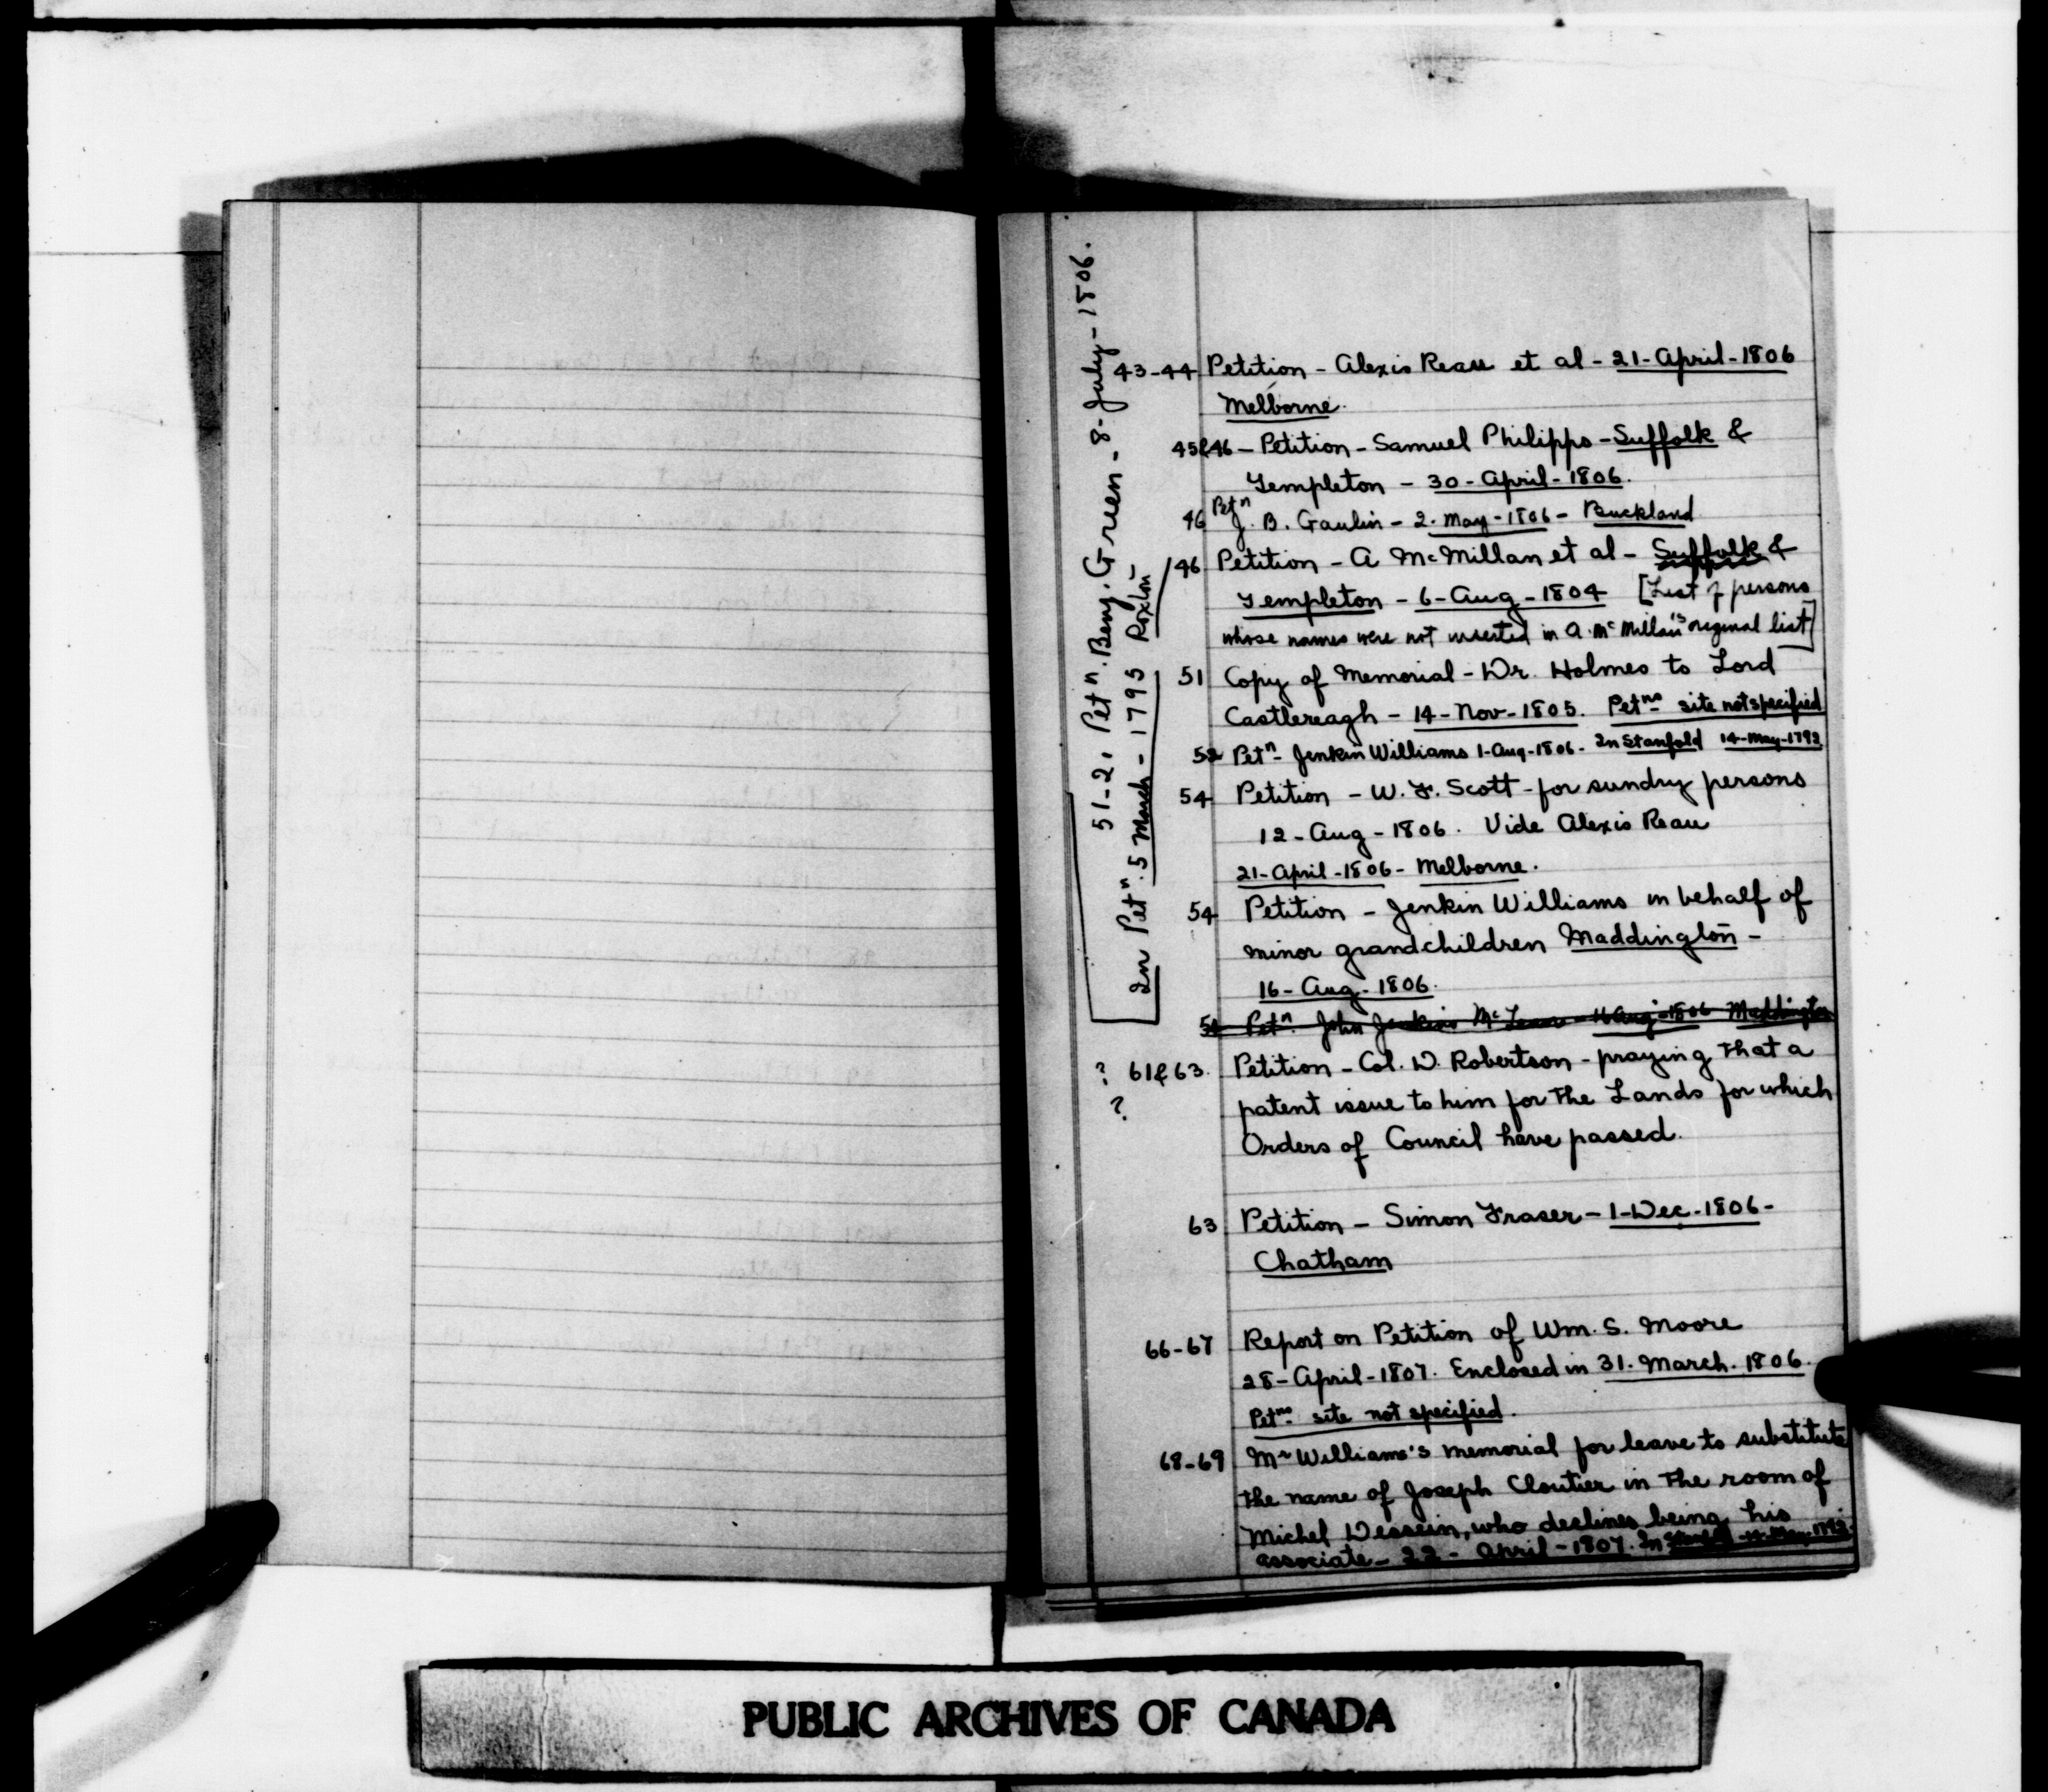 43-44 Petition - Alexis Reau et al - 21-April-1806
Melborne.
45&46 - Petition - Samuel Philipps - Suffolk &
Templeton - 30-April-1806.
46 Petn J. B. Gaulin - 2. May-1806 - Buckland
46 Petition - A McMillan et al - Suffolk &
Templeton - 6-Aug-1804 [List of persons
whose names were not inserted in A. McMillan's original list]
51 Copy of Memorial - Dr. Holmes to Lord
Castlereagh - 14-Nov-1805. Petns site not specified
52 Petn - Jenkin Williams 1-Aug-1806 - In Stanfold 14-May-1792
54 Petition - W. F. Scott - for sundry persons
12-Aug-1806. Vide Alexis Reau
21-April-1806 - Melborne.
54 Petition - Jenkin Williams in behalf of
minor grandchildren Maddington -
16-Aug-1806.
Petn. John Jenkins - 16 Aug-1806 Maddington
? 61&63. Petition - Col. D. Robertson - praying that a
? patent issue to him for the Lands for which
Orders of Council have passed.
63 Petition - Simon Fraser - 1-Dec-1806 -
Chatham
66-67 Report on Petition of Wm. S. Moore
28-April-1807. Enclosed in 31. March. 1806.
Petns site not specified.
68-69 Mr Williams's memorial for leave to substitute
the name of Joseph Cloutier in the room of
Michel Dessein, who declines being his
associate - 22 - April - 1807. In Stanfold - 14-May-1792.
51-2, Petn. Benj. Green - 8-July-1806.
In Petn. 5 March - 1795 Roxton
PUBLIC ARCHIVES OF CANADA